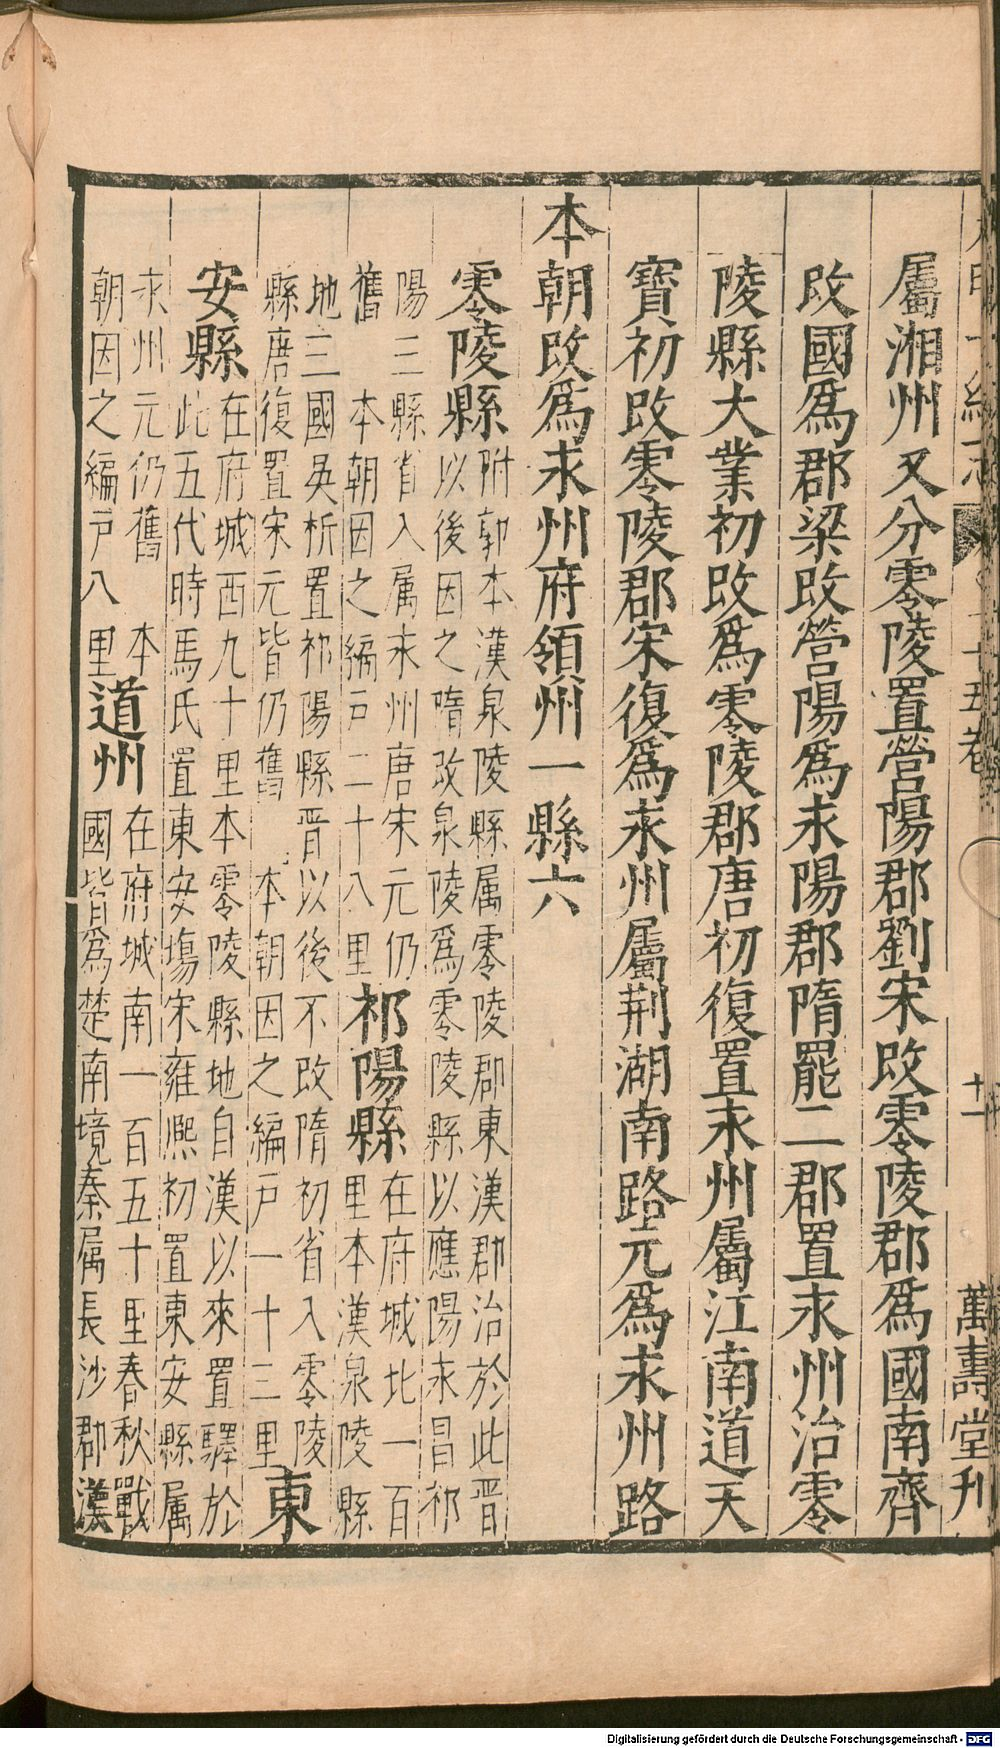 屬湘州又分零陵置營陽郡劉宋改零陵郡爲國南齊
改國爲郡梁改營陽爲永陽郡隋罷二郡置永州治零
陵縣大業初改爲零陵郡唐初復置永州屬江南道天
寶初改零陵郡宋復爲永州屬荆湖南路元爲永州路
本朝改爲永州府領州一縣六
零陵縣
附郭本漢泉陵縣属零陵郡東漢郡治於此晋
以後因之隋改泉陵爲零陵縣以應陽永昌祁
陽三縣省入属永州唐宋元仍
舊 本朝因之編户二十八里
祁陽縣
在府城北一百
里本漢泉陵縣
地三國吳析置祁陽縣晋以後不改隋初省入零陵
縣唐復置宋元皆仍舊 本朝因之編户一十三里
東
安縣
在府城西九十里本零陵縣地自漢以來置驛於
此五代時馬氏置東安塲宋雍熈初置東安縣属
永州元仍舊 本
朝因之編户八里
道州
在府城南一百五十里春秋戰
國皆爲楚南境秦属長沙郡漢
十一
萬壽堂刋
Digitalisierung gefördert durch die Deutsche Forschungsgemeinschaft - DFG